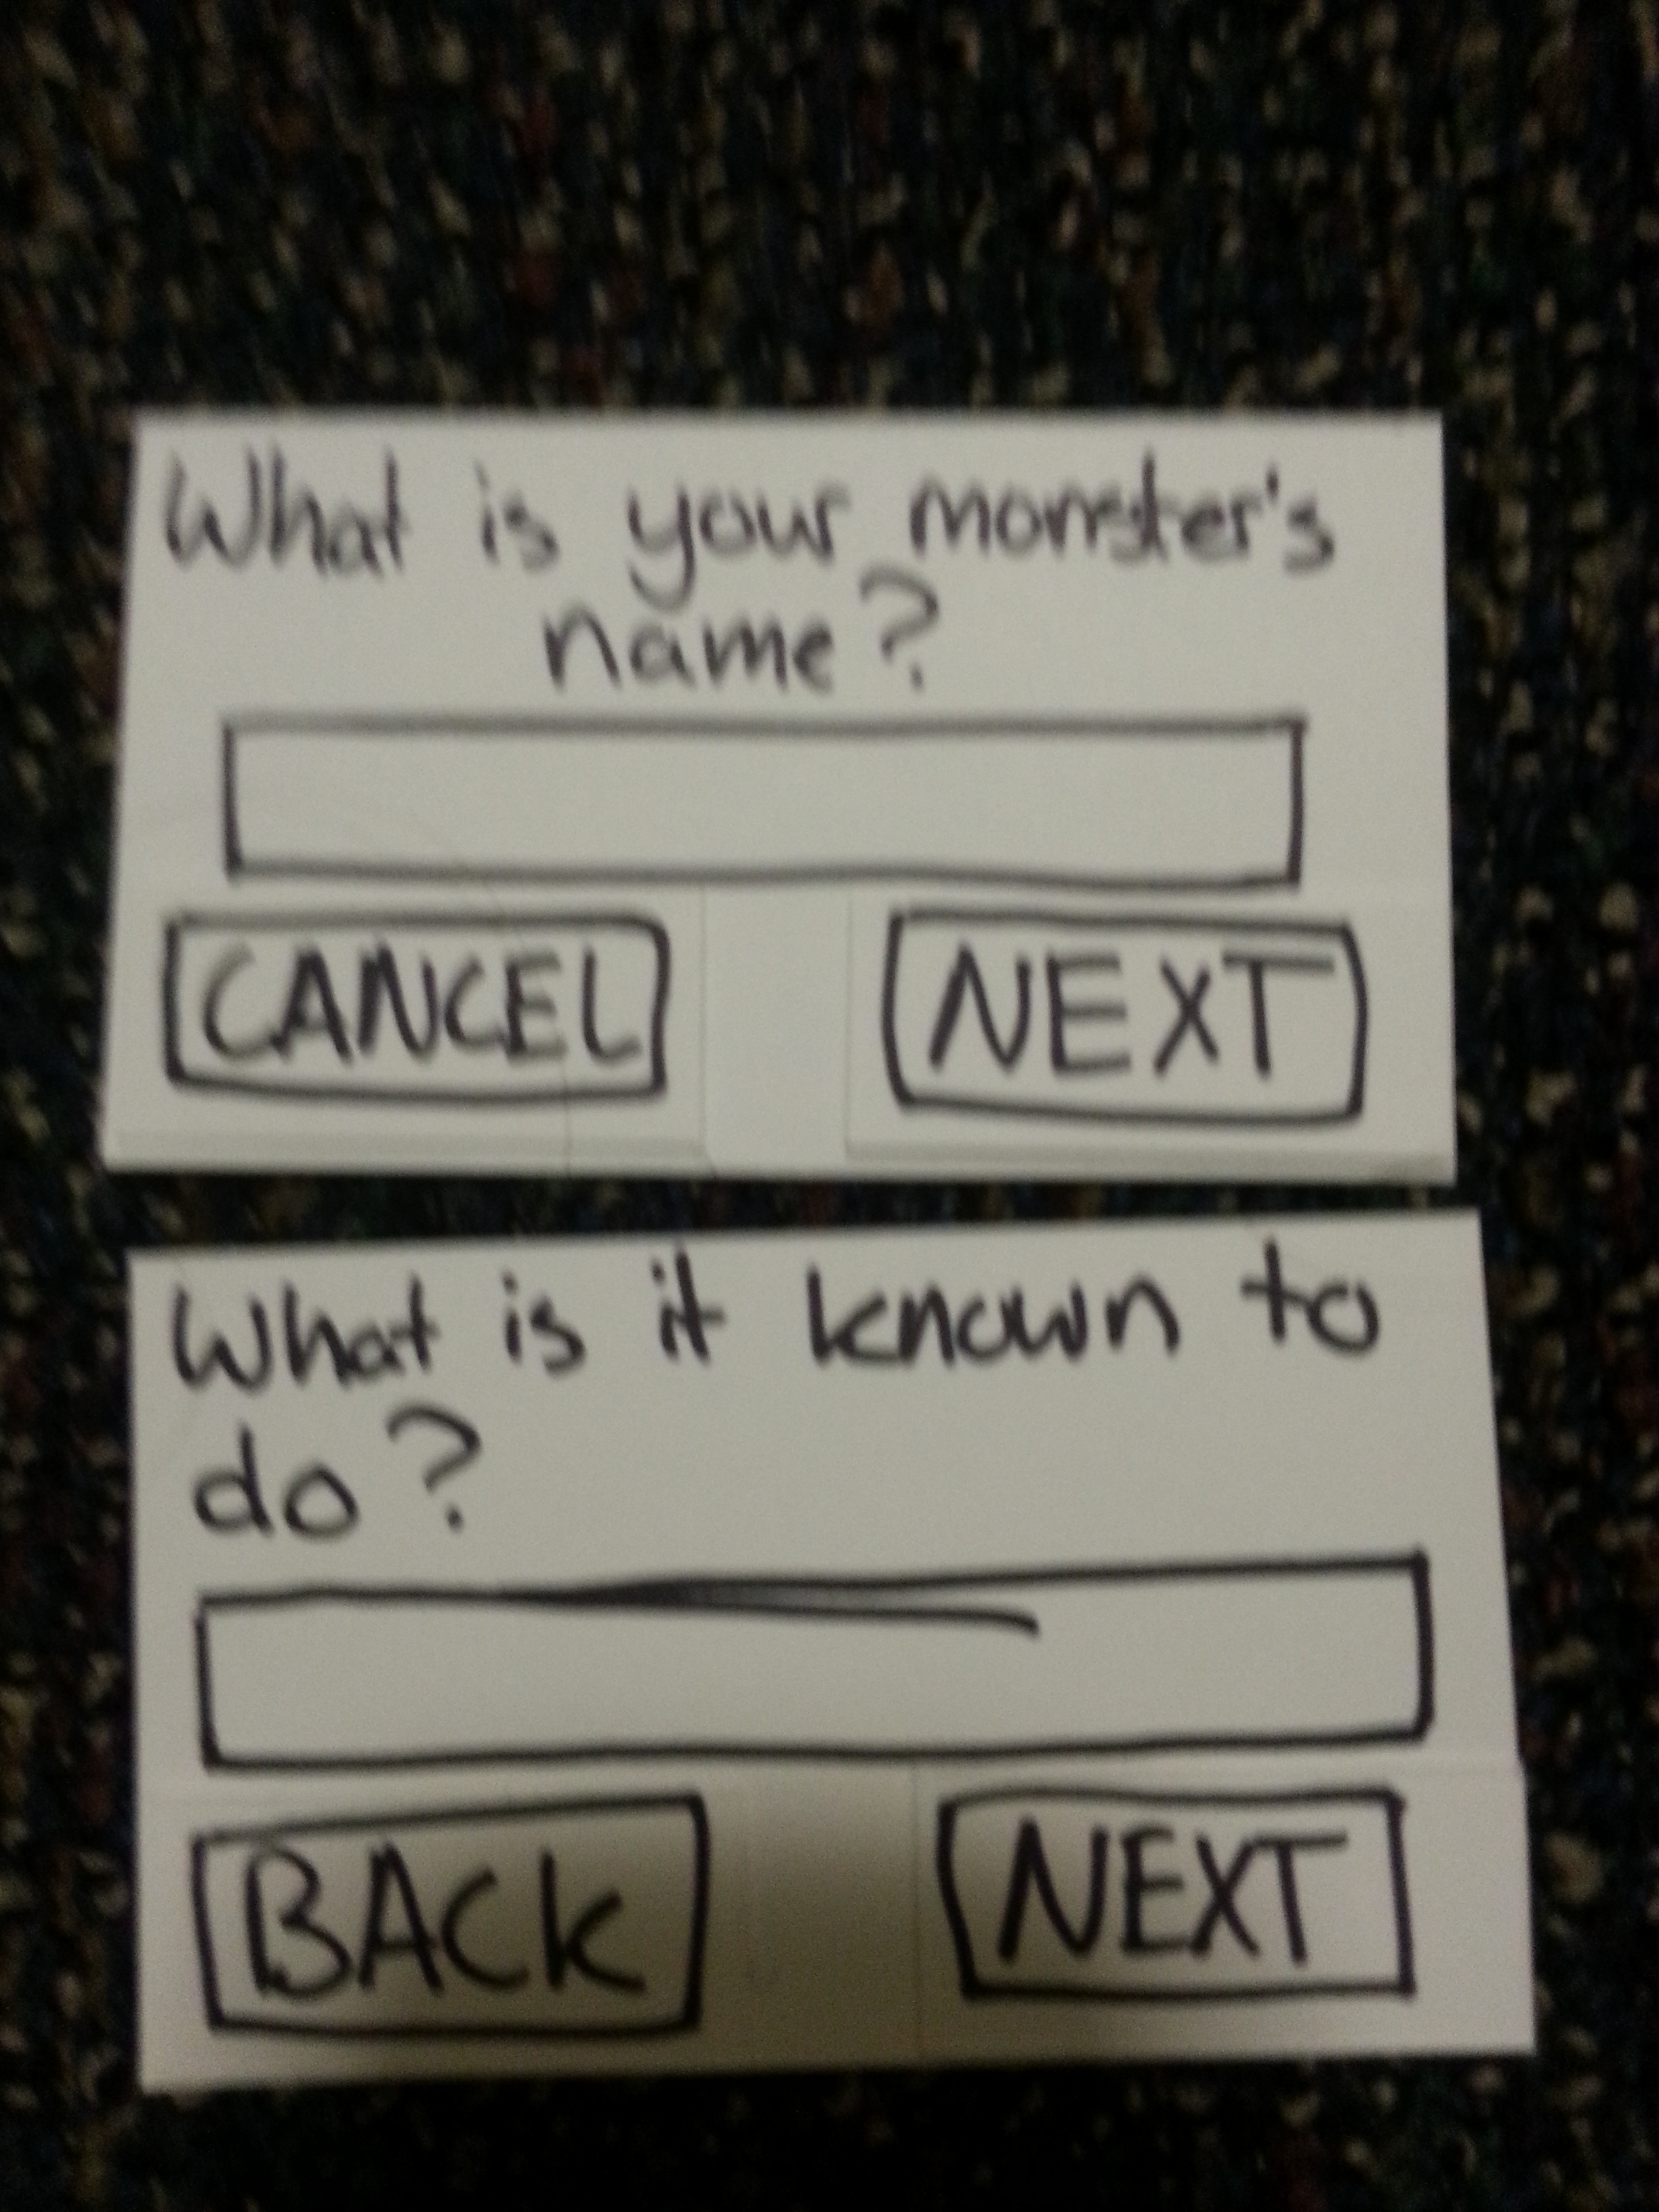 What is your monster's
name?
CANCEL NEXT
What is it known to
do?
BACK NEXT